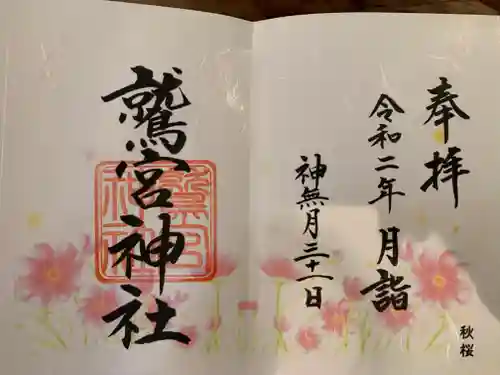 奉拝
令和二年 月詣
神無月三十一日
鷲宮神社
鷲宮神社
秋桜